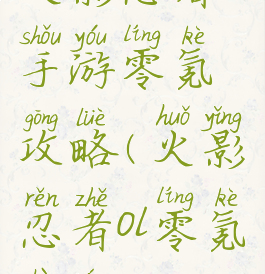 shǒu yóu líng kè
手游零氪
gōng lüè huǒ yǐng
攻略(火影
rěn zhě líng kè
忍者ol零氪